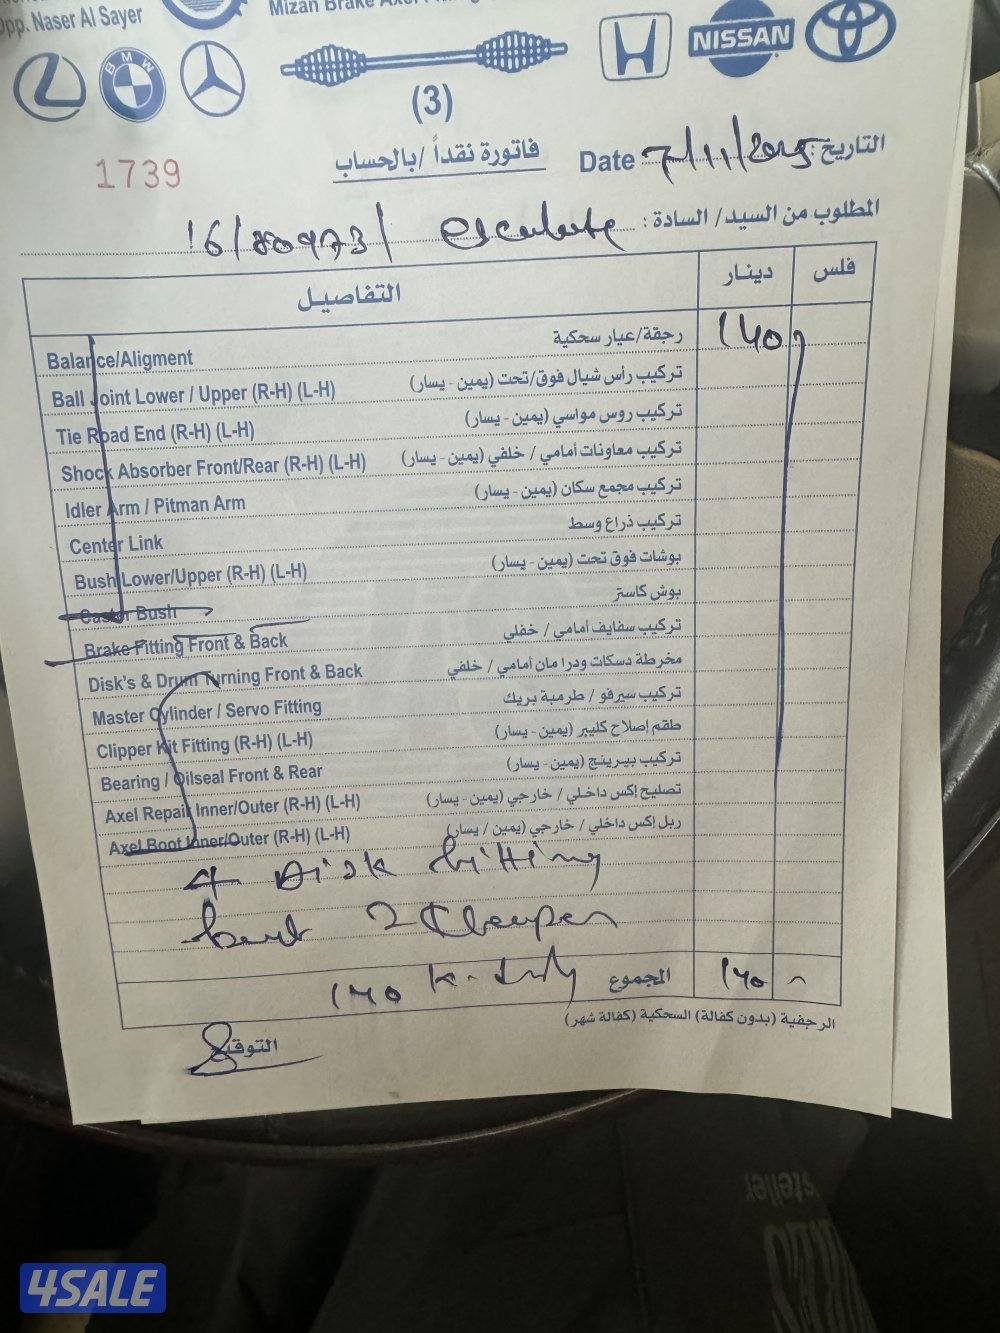 Opp. Naser Al Sayer
Mizan Brake Axel
BMW
NISSAN
(3)
1739
فاتورة نقداً / بالحساب
Date 7/11/2025 التاريخ:
المطلوب من السيد/ السادة: 16/80973/
التفاصيل دينار فلس
Balance/Aligment رجقة/عيار سحكية 140
Ball Joint Lower / Upper (R-H) (L-H) تركيب رأس شيال فوق/تحت (يمين - يسار)
Tie Road End (R-H) (L-H) تركيب روس مواسي (يمين - يسار)
Shock Absorber Front/Rear (R-H) (L-H) تركيب معاونات أمامي / خلفي (يمين - يسار)
Idler Arm / Pitman Arm تركيب مجمع سكان (يمين - يسار)
Center Link تركيب ذراع وسط
Bush Lower/Upper (R-H) (L-H) بوشات فوق تحت (يمين - يسار)
Caster Bush بوش كاستر
Brake Fitting Front & Back تركيب سفايف أمامي / خفلي
Disk's & Drum Turning Front & Back مخرطة دسكات ودرامان أمامي / خلفي
Master Cylinder / Servo Fitting تركيب سيرفو / طرمبة بريك
Clipper Kit Fitting (R-H) (L-H) طقم إصلاح كليبر (يمين - يسار)
Bearing / Oilseal Front & Rear تركيب بيرينج (يمين - يسار)
Axel Repair Inner/Outer (R-H) (L-H) تصليح إكس داخلي / خارجي (يمين - يسار)
Axel Boot Inner/Outer (R-H) (L-H) ربل إكس داخلي / خارجي (يمين / يسار)
4 Disk fitting
2
140 المجموع 140
الرجفية (بدون كفالة) السحكية (كفالة شهر)
التوقيع
4SALE